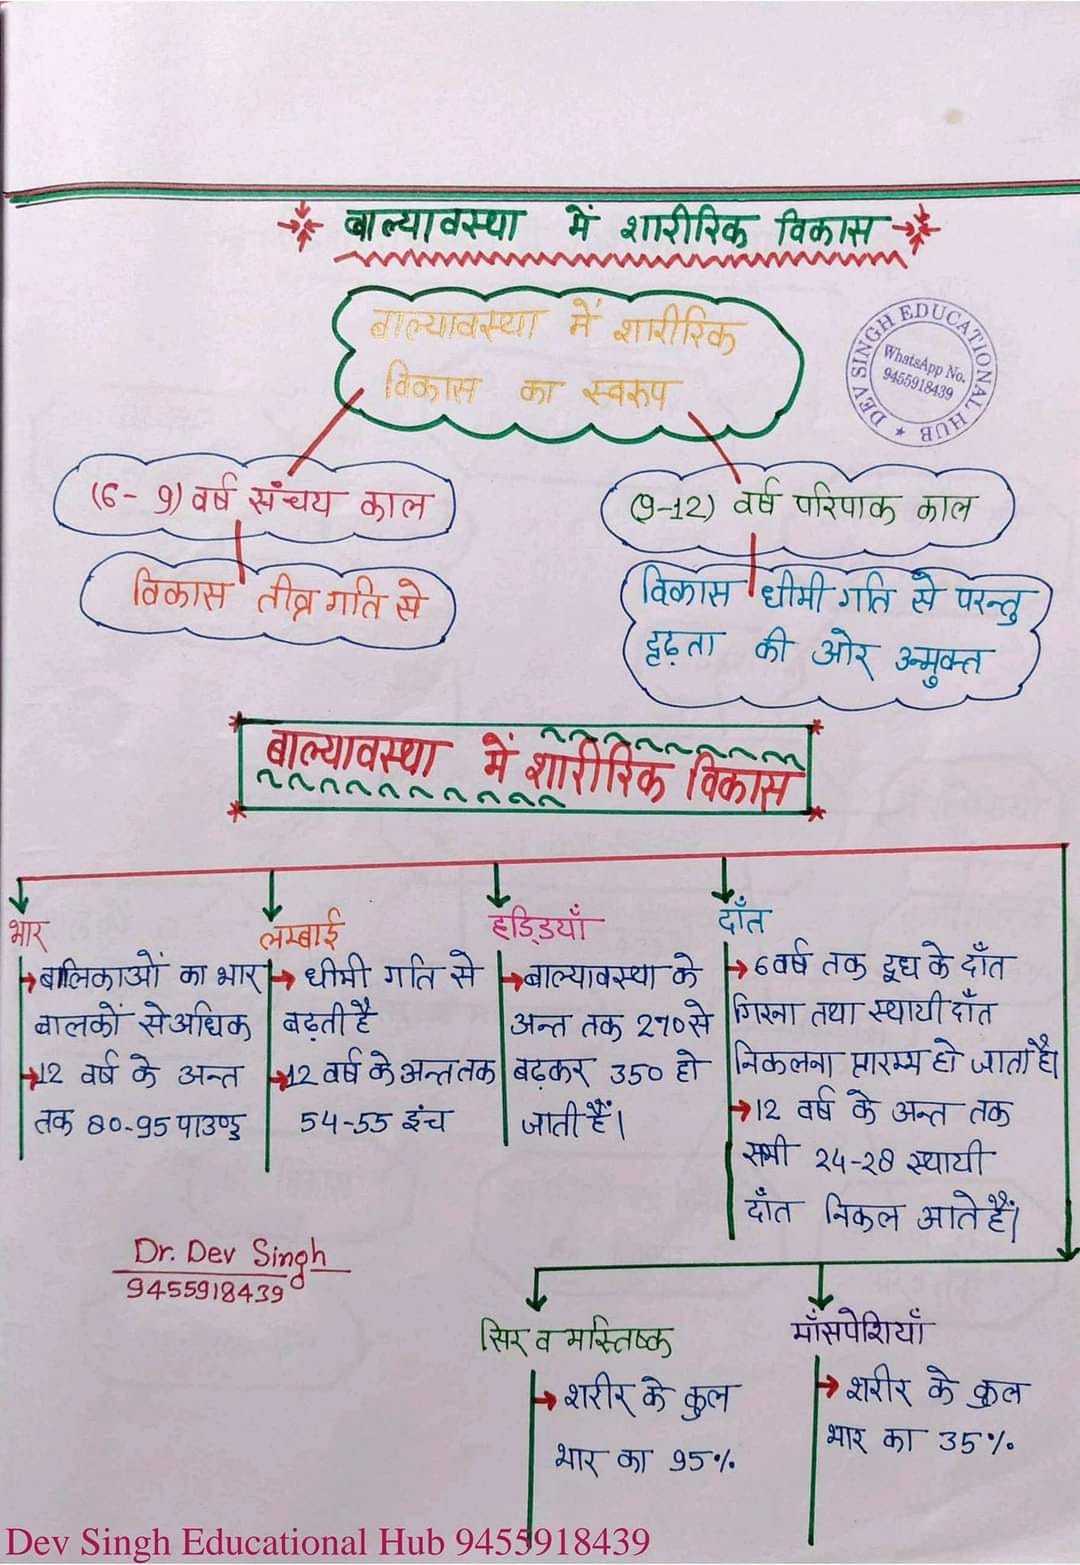 बाल्यावस्था में शारीरिक विकास
बाल्यावस्था में शारीरिक
विकास का स्वरुप
DEV SINGH EDUCATIONAL HUB
WhatsApp No.
9455918439
(6-9) वर्ष संचय काल
(9-12) वर्ष परिपाक काल
विकास तीव्र गति से
विकास धीमी गति से परन्तु
दृढ़ता की ओर उन्मुक्त
बाल्यावस्था में शारीरिक विकास
भार
बालिकाओं का भार
बालकों से अधिक
12 वर्ष के अन्त
तक 80-95 पाउण्ड
लम्बाई
धीमी गति से
बढ़ती है
12 वर्ष के अन्त तक
54-55 इंच
हड्डियाँ
बाल्यावस्था के
अन्त तक 270 से
बढ़कर 350 हो
जाती हैं।
दाँत
6 वर्ष तक दूध के दाँत
गिरना तथा स्थायी दाँत
निकलना प्रारम्भ हो जाता है।
12 वर्ष के अन्त तक
सभी 24-28 स्थायी
दाँत निकल आते हैं।
Dr. Dev Singh
9455918439
सिर व मस्तिष्क
शरीर के कुल
भार का 95%
माँसपेशियाँ
शरीर के कुल
भार का 35%
Dev Singh Educational Hub 9455918439